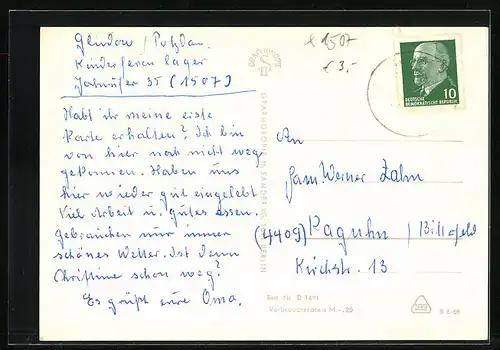 Glindow / Potsdam
Kinderferienlager
Jahnufer 35 (1507)
Habt ihr meine erste
Karte erhalten? Ich bin
von hier noch nicht weg
gekommen. Haben uns
hier wieder gut eingelebt
Viel Arbeit u. gutes Essen.
Gebrauchen nur immer
schönes Wetter. Ist denn
Christine schon weg?
Es grüßt eure Oma.
x 1507
€ 3,-
10
DEUTSCHE
DEMOKRATISCHE REPUBLIK
An
Fam. Werner Zahn
(4409) Raguhn / Bitterfeld
Kirchstr. 13
BERLIN
Best.-Nr. D 1491
Verbraucherpreis M -,25